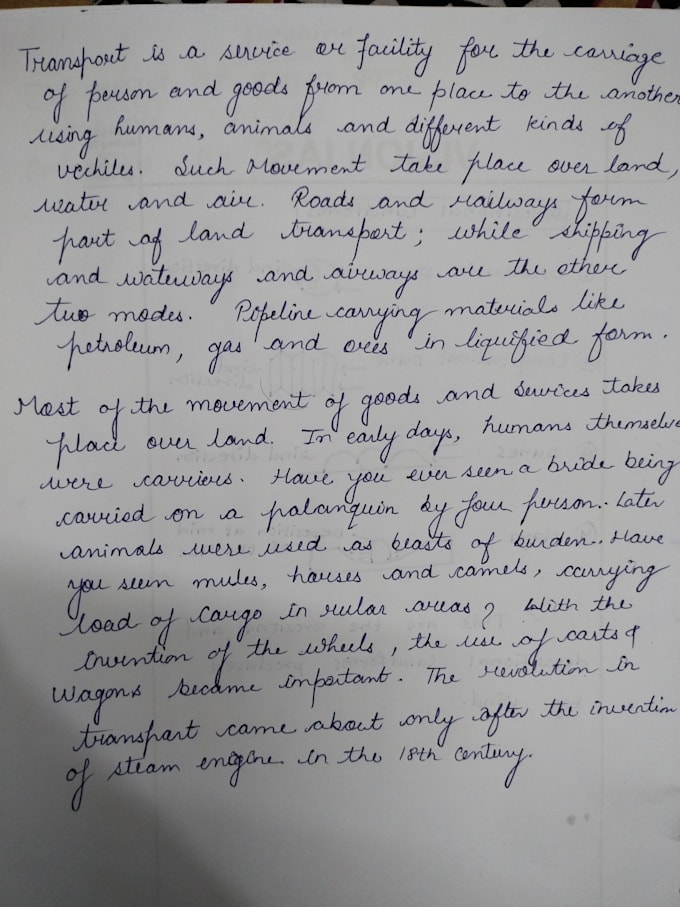 Transport is a service or facility for the carriage
of person and goods from one place to the another
using humans, animals and different kinds of
vechiles. Such Movement take place over land,
water and air. Roads and railways form
part of land transport; while shipping
and waterways and airways are the other
two modes. Pipeline carrying materials like
petroleum, gas and ores in liquified form.
Most of the movement of goods and services takes
place over land. In early days, humans themselve
were carriers. Have you ever seen a bride being
carried on a palanquin by four person. Later
animals were used as beasts of burden. Have
you seen mules, horses and camels, carrying
load of Cargo in rular areas? With the
invention of the wheels, the use of carts &
Wagons became important. The revolution in
transport came about only after the invention
of steam engine in the 18th century.